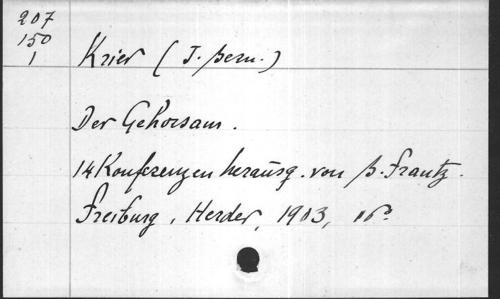 207
150
1
Krier (J. Bern.)
Der Gehorsam.
14 Konferenzen herausg. von B. Frantz.
Freiburg, Herder, 1903, 16º